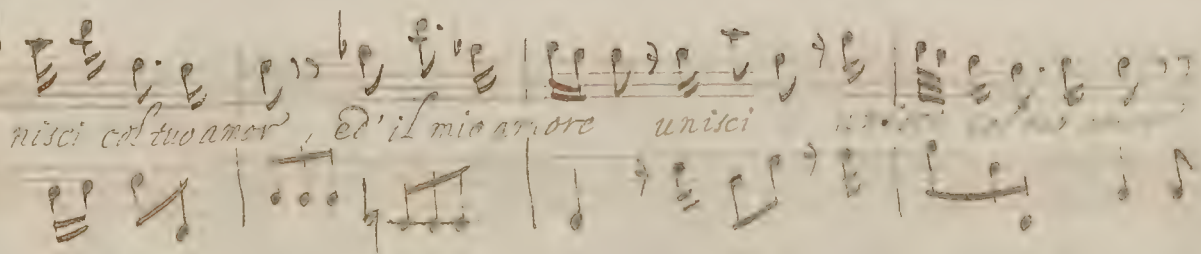 nisci col tuo amor, ed' il mio amore unisci